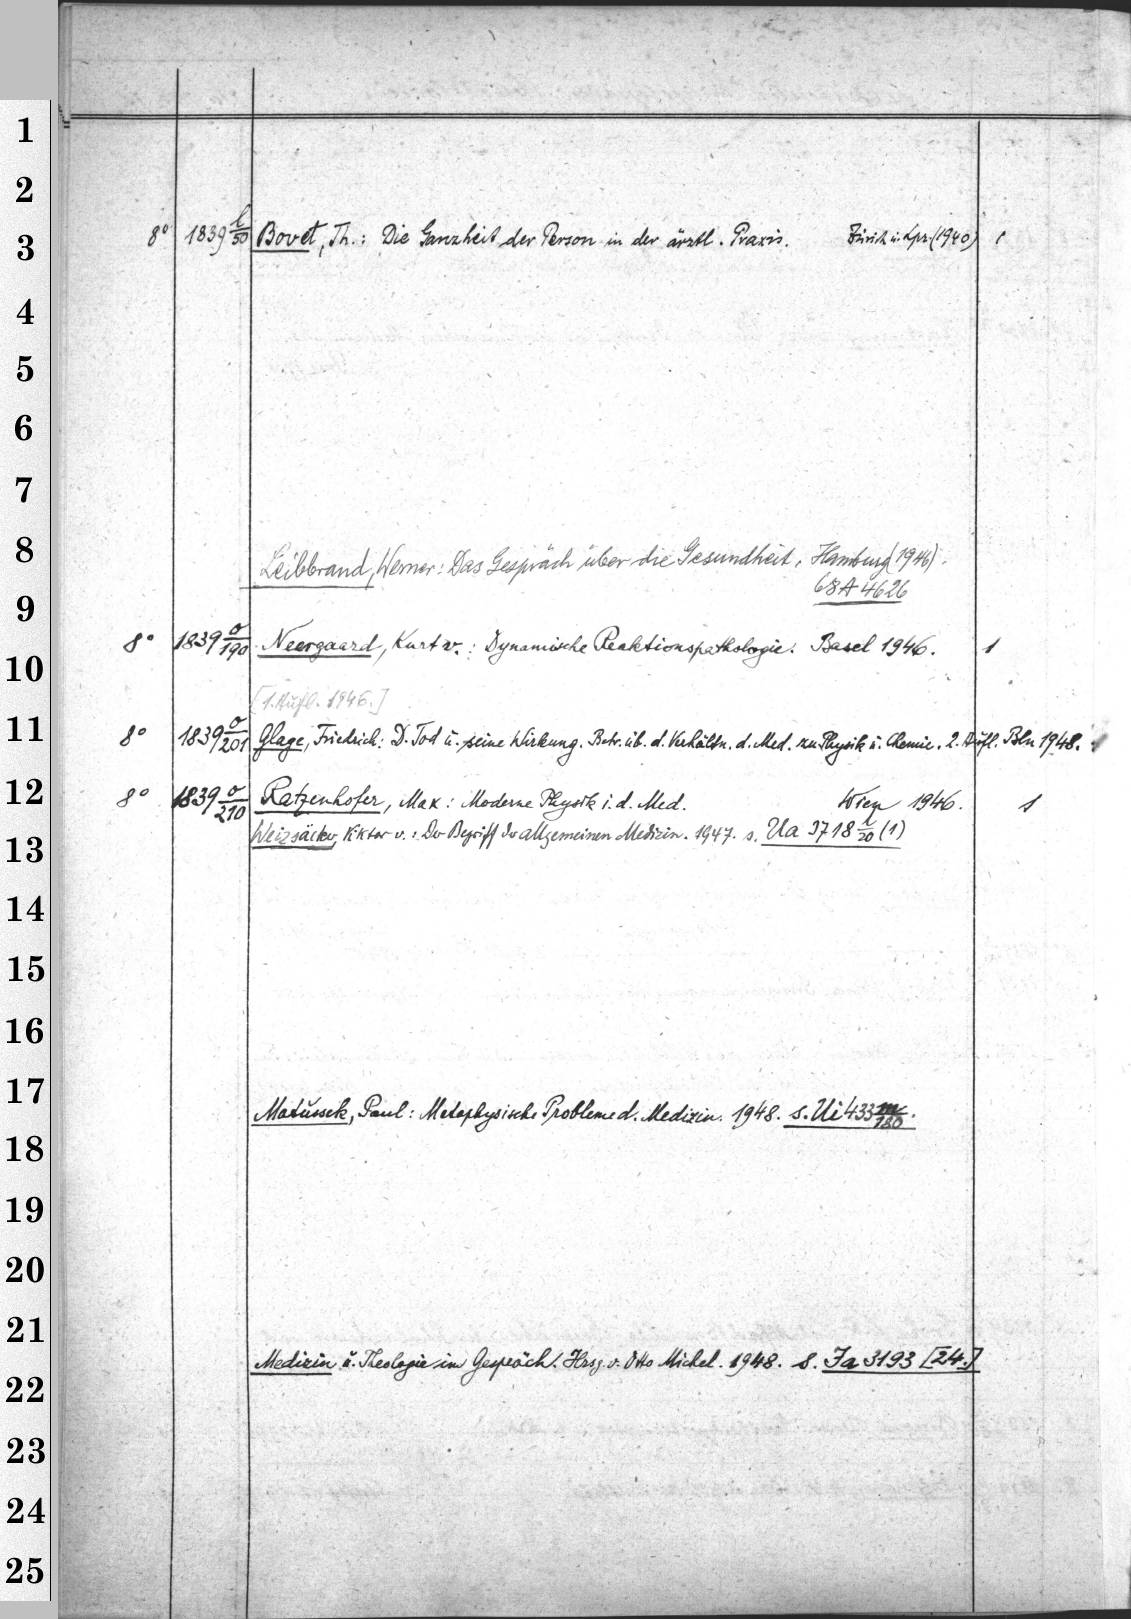 1
2
8° 1839 l/50 Bovet, Th.: Die Ganzheit der Person in der ärztl. Praxis. Zürich u. Lpz. (1940) 1
3
4
5
6
7
8
Leibbrand, Werner: Das Gespräch über die Gesundheit. Hamburg (1946).
68A4626
9
8° 1839 o/190 Neergaard, Kurt v.: Dynamische Reaktionspathologie. Basel 1946. 1
10
[1. Aufl. 1946.]
11
8° 1839 o/201 Glage, Friedrich: D. Tod u. seine Wirkung. Betr. üb. d. Verhältn. d. Med. zu Physik u. Chemie. 2. Aufl. Bln 1948. 1
12
8° 1839 o/210 Ratzenhofer, Max: Moderne Physik i. d. Med. Wien 1946. 1
Weizsäcker, Viktor v.: Der Begriff der allgemeinen Medizin. 1947. s. Ua 3718 l/20 (1)
13
14
15
16
17
Matussek, Paul: Metaphysische Probleme d. Medizin. 1948. s. Ui 433 m/180.
18
19
20
21
Medizin u. Theologie im Gespräch. Hrsg. v. Otto Michel. 1948. s. Ja 3193 [24.]
22
23
24
25